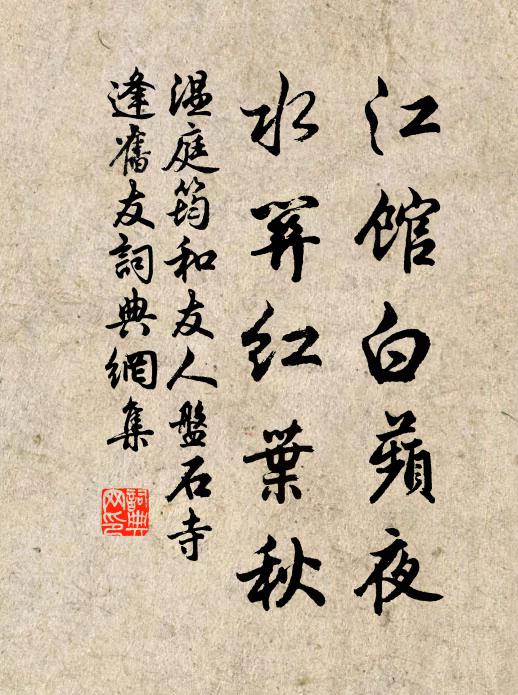 江館白蘋夜
水關紅葉秋
温庭筠和友人盤石寺
逢舊友詞典網集
詞典
网印